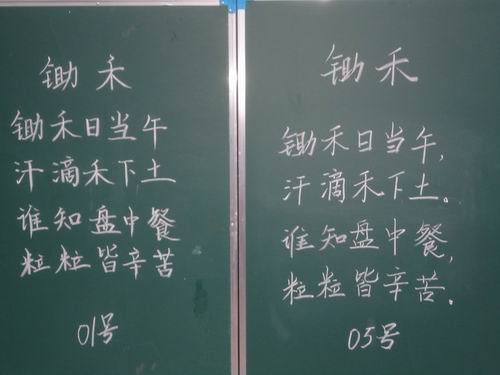 锄禾
锄禾日当午
汗滴禾下土
谁知盘中餐
粒粒皆辛苦
01号
锄禾
锄禾日当午,
汗滴禾下土。
谁知盘中餐,
粒粒皆辛苦。
05号